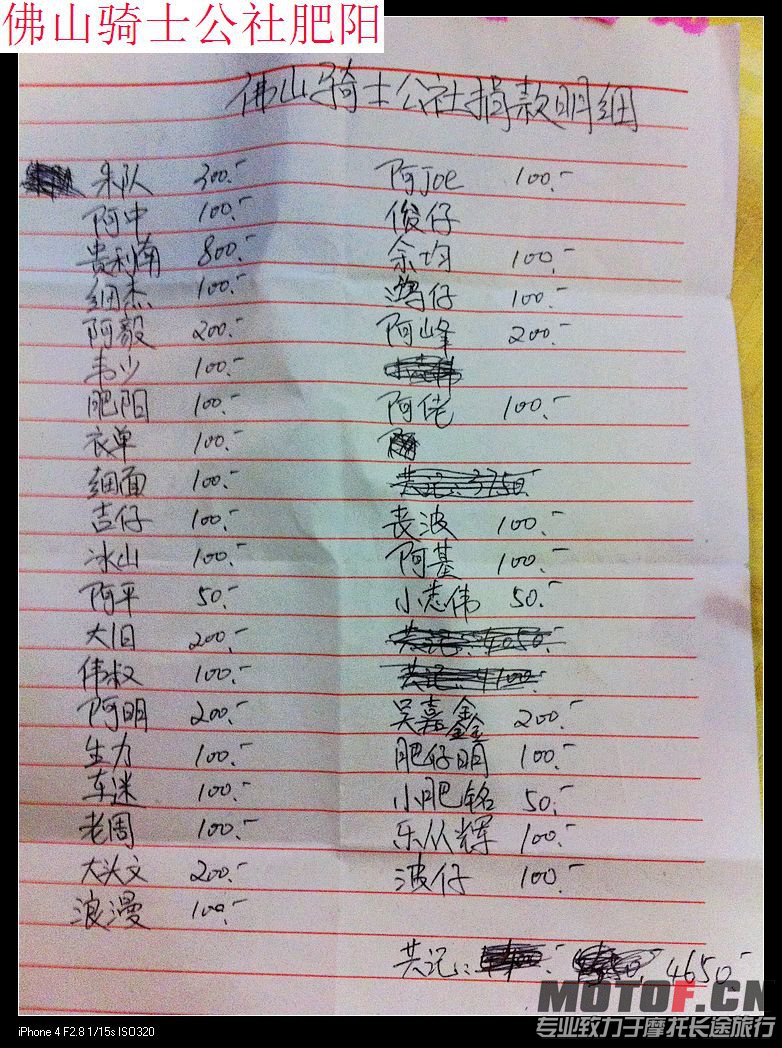 佛山骑士公社肥阳
佛山骑士公社捐款明细
朱队 300.-
阿中 100.-
贵利南 800.-
细杰 100.-
阿毅 200.-
韦少 100.-
肥阳 100.-
衣单 100.-
细面 100.-
吉仔 100.-
冰山 100.-
阿平 50.-
大旧 200.-
伟叔 100.-
阿明 200.-
生力 100.-
车迷 100.-
老周 100.-
大头文 200.-
浪漫 100.-
阿Joe 100.-
俊仔
余均 100.-
鸿仔 100.-
阿峰 200.-
阿佬 100.-
共记: 3750.-
丧波 100.-
阿基 100.-
小志伟 50.-
共记: 4050.-
共记: 4100.-
吴嘉鑫 200.-
肥仔明 100.-
小肥铭 50.-
乐从辉 100.-
波仔 100.-
共记: 4650.-
MOTOF.CN
专业致力于摩托长途旅行
iPhone 4 F2.8 1/15s ISO320